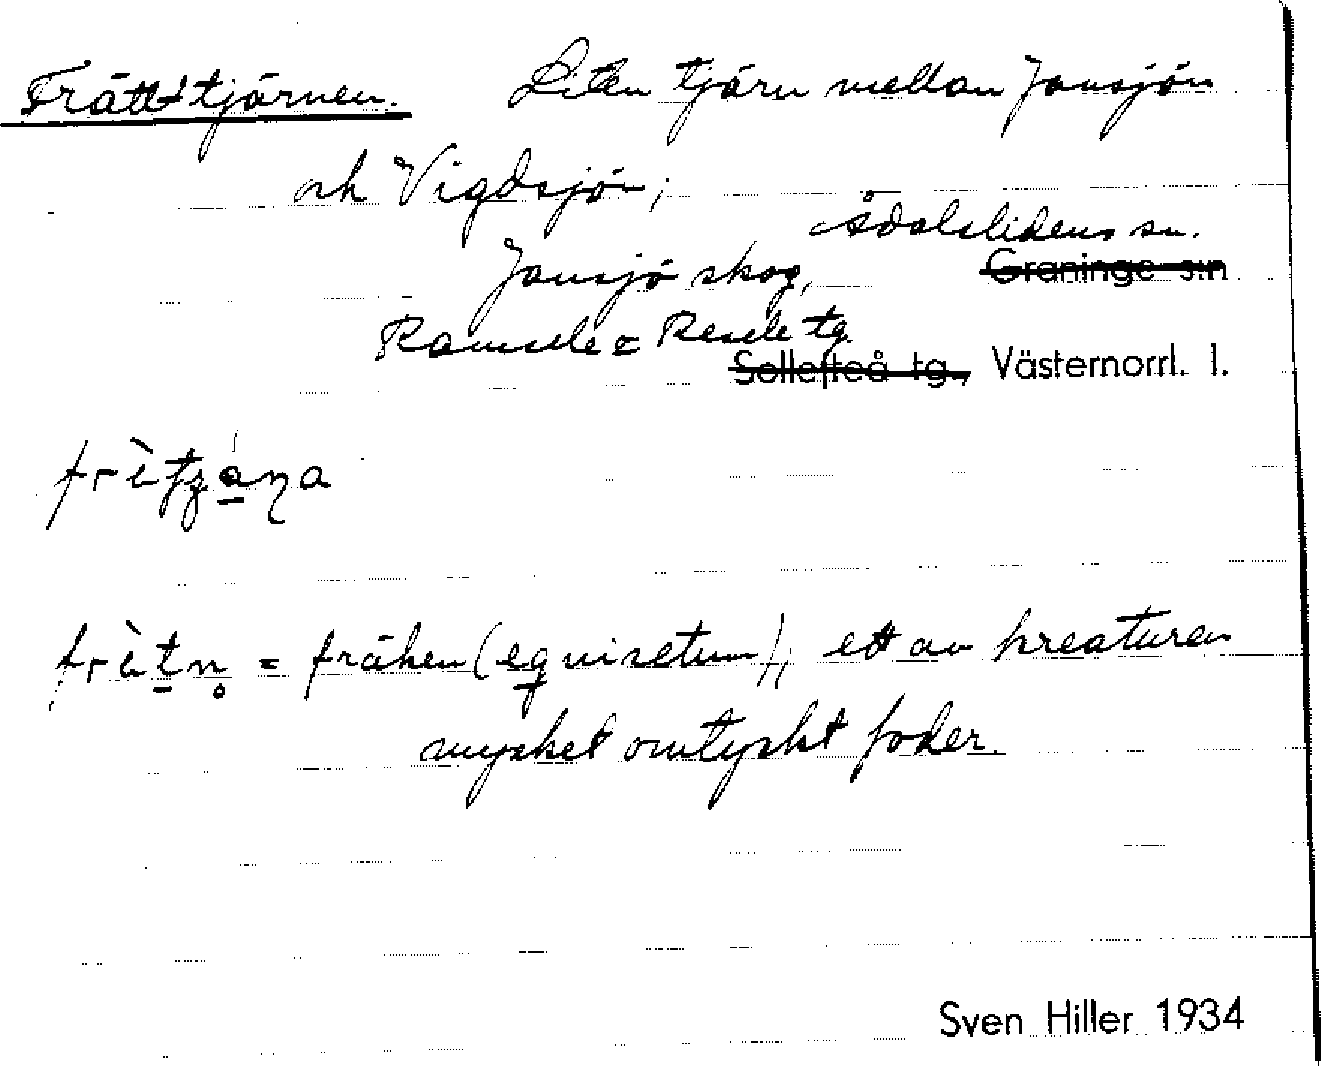 Frätt-tjärnen. Liten tjärn mellan Jansjön
och Vigdsjön;
Ådalslidens sn.
Jansjö skog, Graninge s:n
Ramsele o Resele tg.
Sollefteå tg., Västernorrl. l.
frètn̥ = fräken (equisetum), ett av kreaturen
mycket omtyckt foder.
Sven Hiller 1934